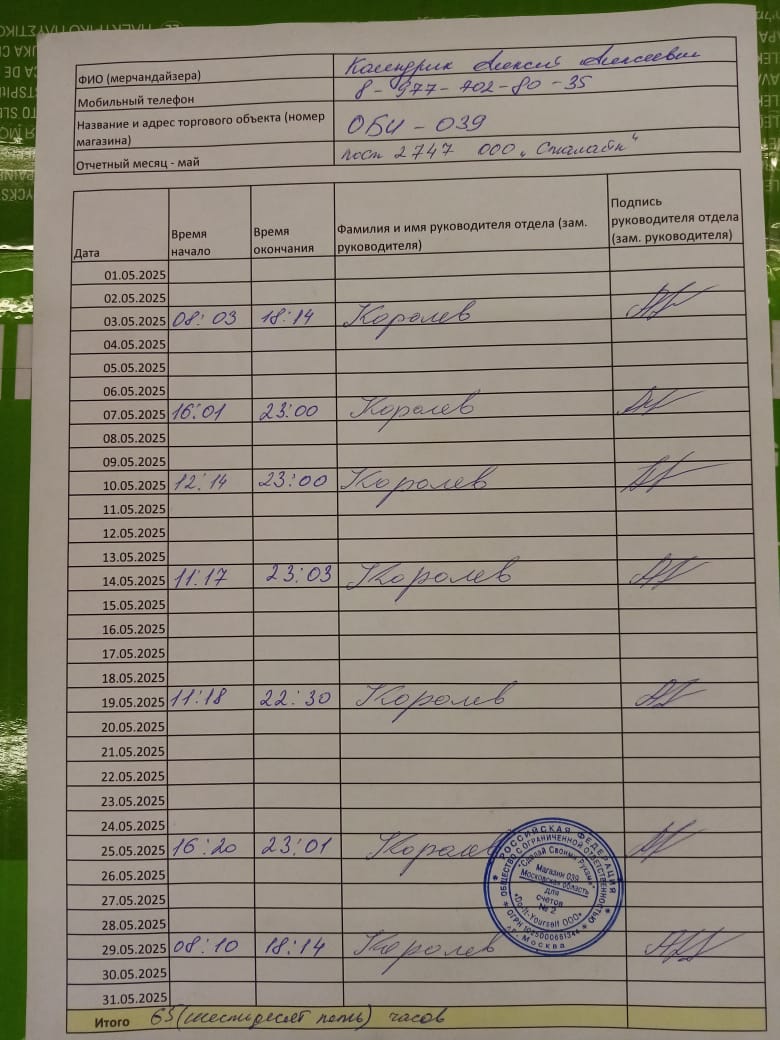 ФИО (мерчандайзера) Календрик Алексей Алексеевич
Мобильный телефон 8-977-702-80-35
Название и адрес торгового объекта (номер магазина) ОБИ - 039
Отчетный месяц - май пост 2747 ООО „Смалайн“
Дата Время начало Время окончания Фамилия и имя руководителя отдела (зам. руководителя) Подпись руководителя отдела (зам. руководителя)
01.05.2025
02.05.2025
03.05.2025 08:03 18:14 Королев
04.05.2025
05.05.2025
06.05.2025
07.05.2025 16:01 23:00 Королев
08.05.2025
09.05.2025
10.05.2025 12:14 23:00 Королев
11.05.2025
12.05.2025
13.05.2025
14.05.2025 11:17 23:03 Королев
15.05.2025
16.05.2025
17.05.2025
18.05.2025
19.05.2025 11:18 22:30 Королев
20.05.2025
21.05.2025
22.05.2025
23.05.2025
24.05.2025
25.05.2025 16:20 23:01 Королев
26.05.2025
27.05.2025
28.05.2025
29.05.2025 08:10 18:14 Королев
30.05.2025
31.05.2025
Итого 65 (шестьдесят пять) часов
РОССИЙСКАЯ ФЕДЕРАЦИЯ
ОБЩЕСТВО С ОГРАНИЧЕННОЙ ОТВЕТСТВЕННОСТЬЮ
"Сделай Своими Руками"
Магазин 039
Московская область
для
счетов
№ 2
"Do-It-Yourself ООО"
г. Москва